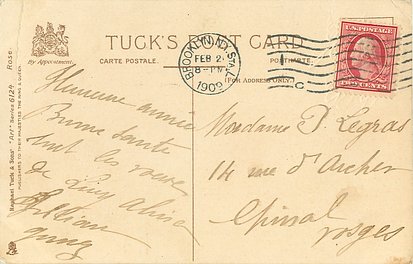 TUCK'S POST CARD
By Appointment.
CARTE POSTALE.
POSTKARTE.
(FOR ADDRESS ONLY.)
BROOKLYN, N.Y. STA. L
FEB 2
8-PM
1909
C
U.S. POSTAGE
TWO CENTS
Heureuse année
Bonne Santé
sont les voeux
de
Lillian
Madame P. Legras
14 rue d'Archer
Epinal
Vosges
Raphael Tuck & Sons' "Art" Series 6124. Rose
PUBLISHERS TO THEIR MAJESTIES THE KING & QUEEN